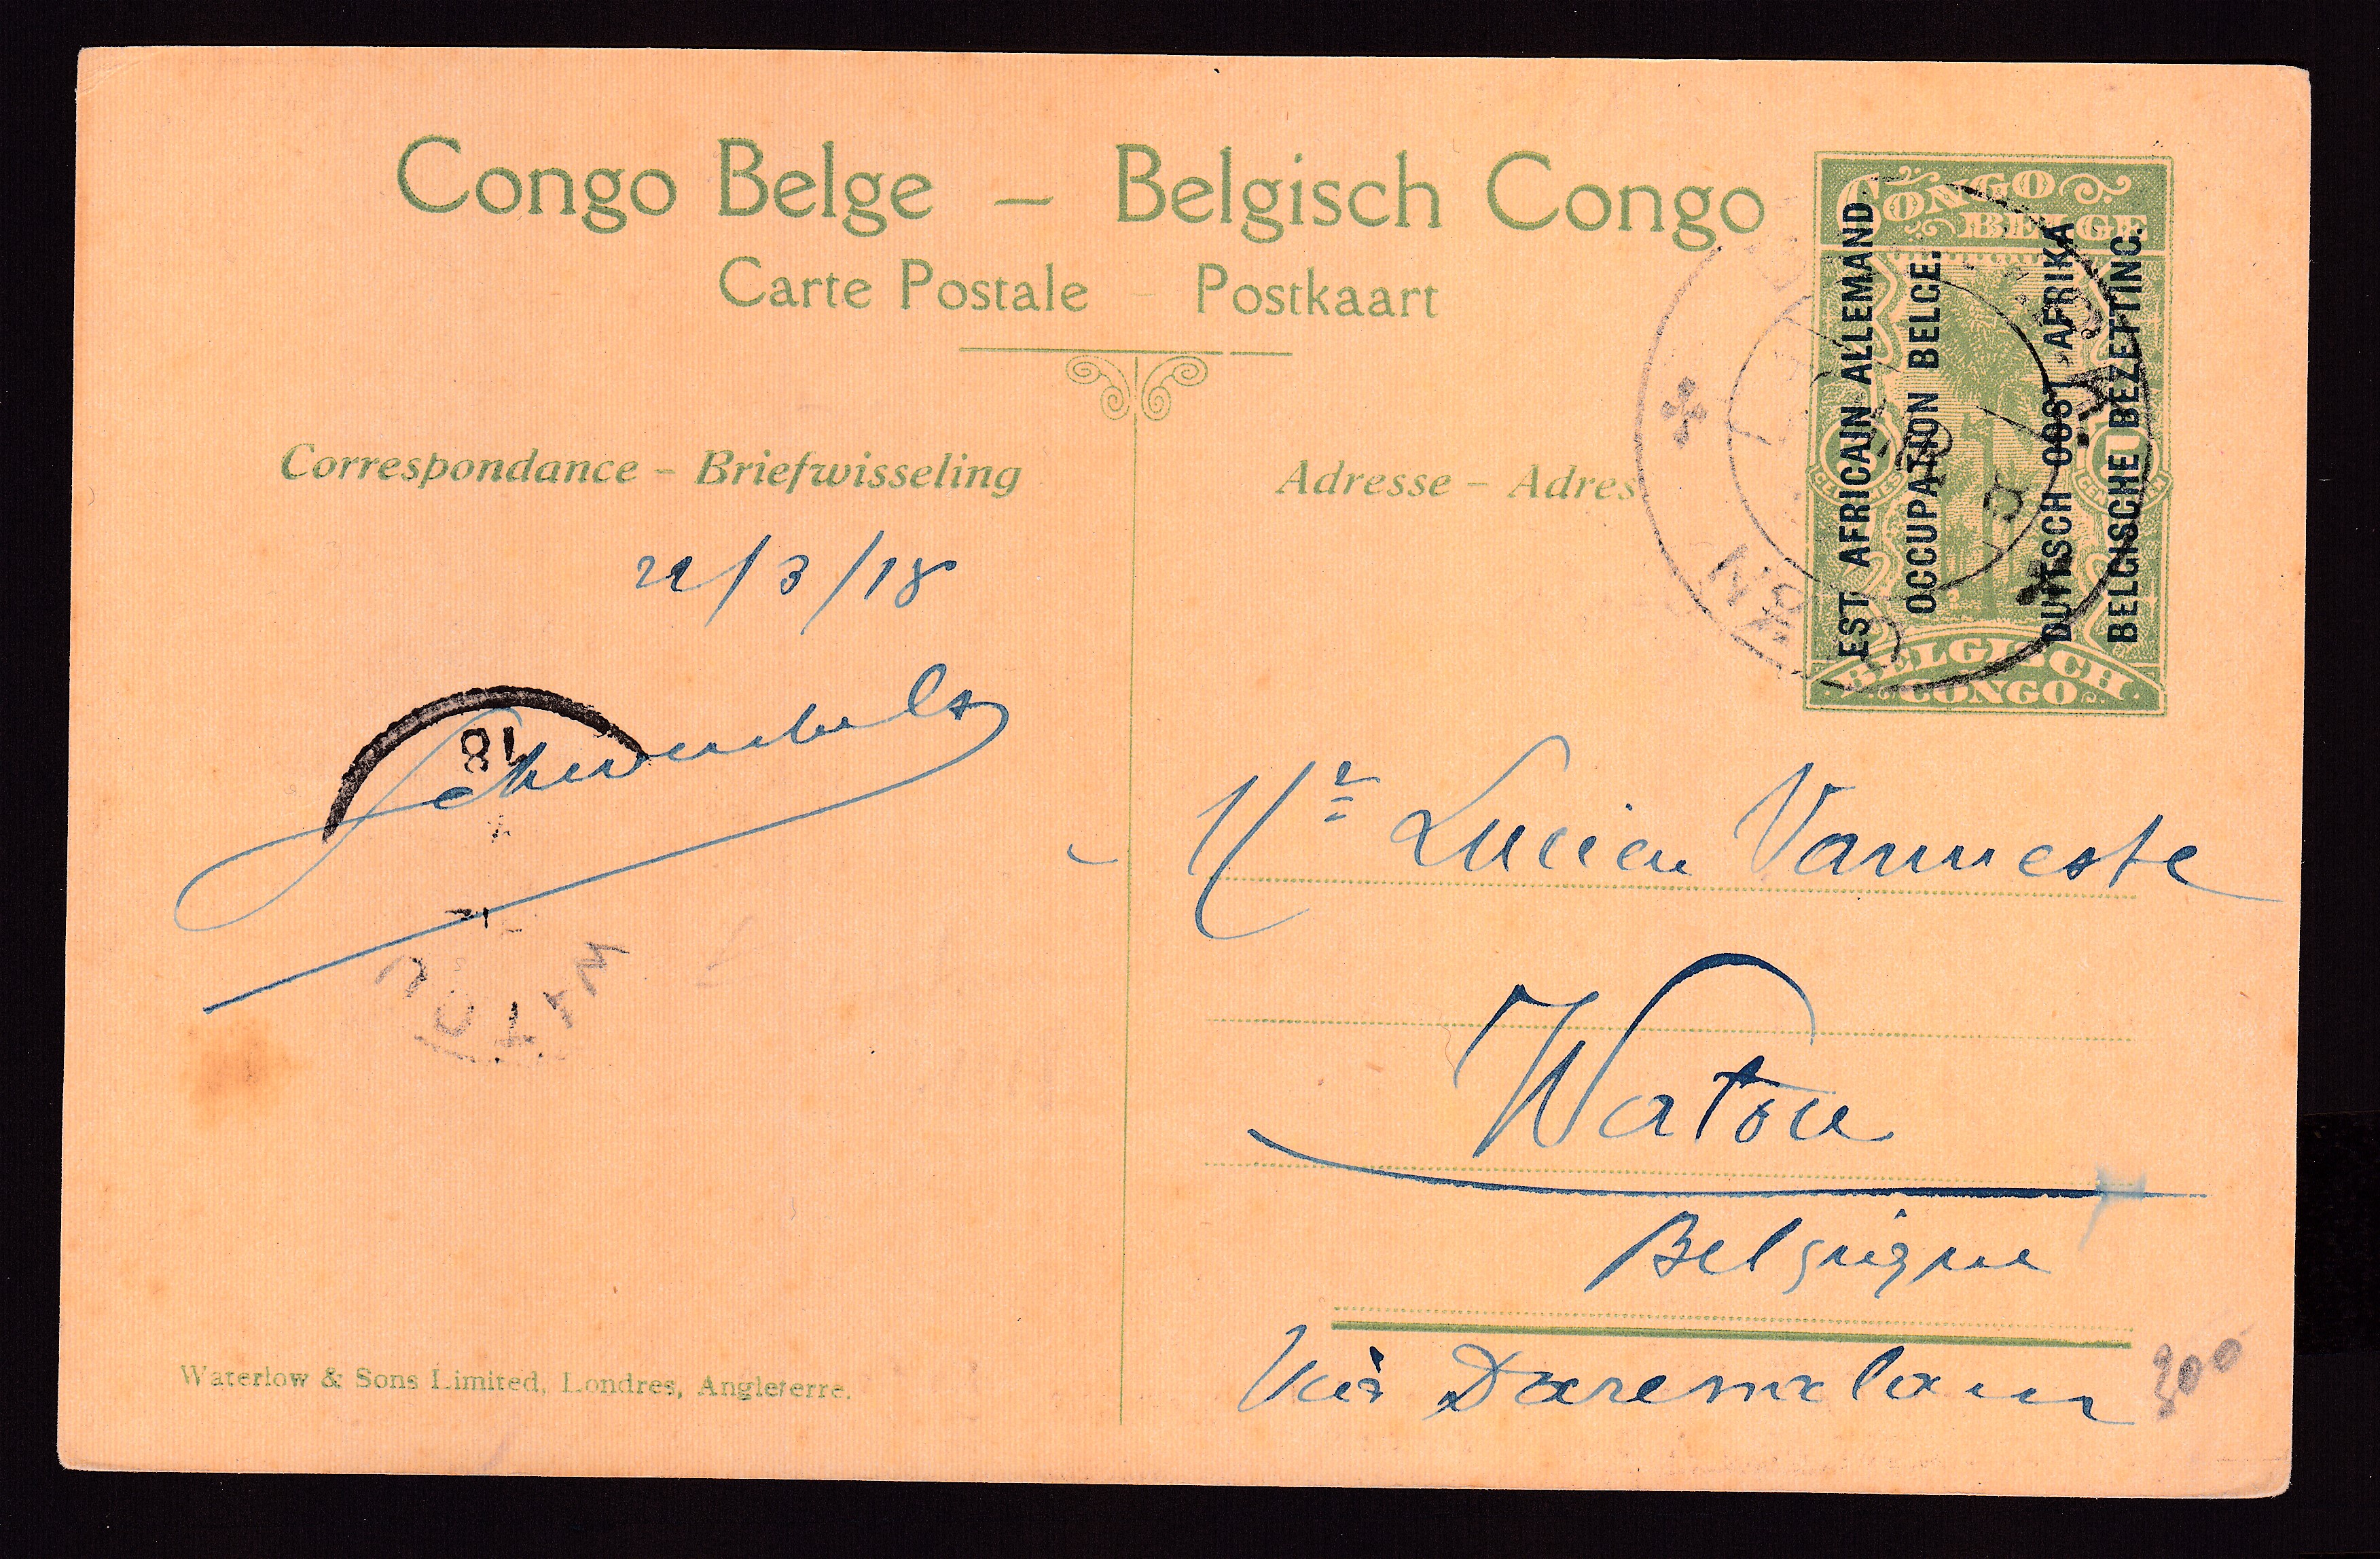 Congo Belge – Belgisch Congo
Carte Postale – Postkaart
CONGO
BELGE
EST AFRICAIN ALLEMAND.
OCCUPATION BELGE.
DUITSCH OOST AFRIKA
BELGISCHE BEZETTING.
BELGISCH
CONGO
Correspondance – Briefwisseling
Adresse – Adres
22/3/18
18
WATOU
Mr Lucien Vanneste
Watou
Belgique
Via Daresmalam
300
Waterlow & Sons Limited, Londres, Angleterre.